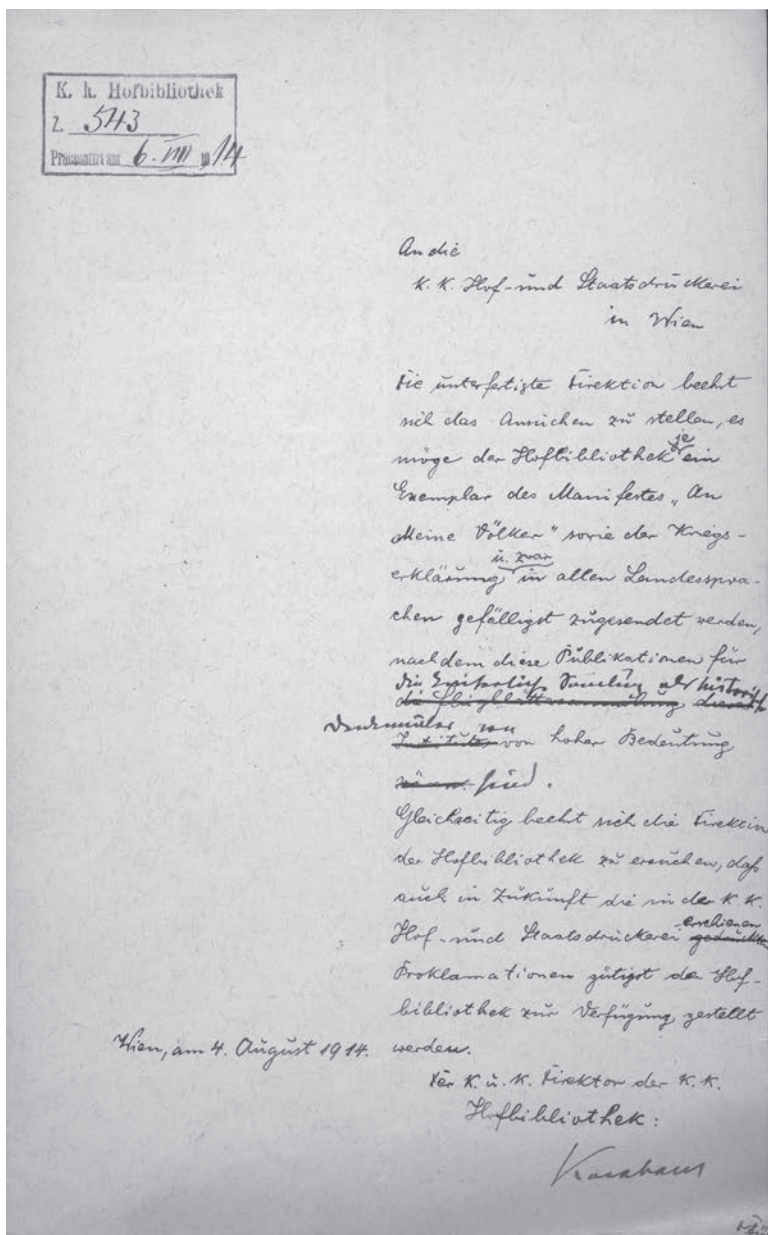 K. k. Hofbibliothek
Z. 543
Präsentiert am 6. VIII 1914
An die
K. K. Hof- und Staatsdruckerei
in Wien
Die unterfertigte Direktion beehrt
sich das Ansuchen zu stellen, es
je
möge der Hofbibliothek ein
Exemplar des Manifestes „An
Meine Völker" sowie der Kriegs-
u. zwar
erklärung, in allen Landesspra-
chen gefälligst zugesendet werden,
nachdem diese Publikationen für
die Sammlung als historische
die Flugblättersammlung dieses
Denkmäler von
Institutes von hoher Bedeutung
wären sind.
Gleichzeitig beehrt sich die Direktion
der Hofbibliothek zu ersuchen, daß
auch in Zukunft die in der K. K.
erschienenen
Hof- und Staatsdruckerei gedruckten
Proklamationen gütigst der Hof-
bibliothek zur Verfügung gestellt
Wien, am 4. August 1914. werden.
Der K. u. K. Direktor der K. K.
Hofbibliothek:
Karabacek